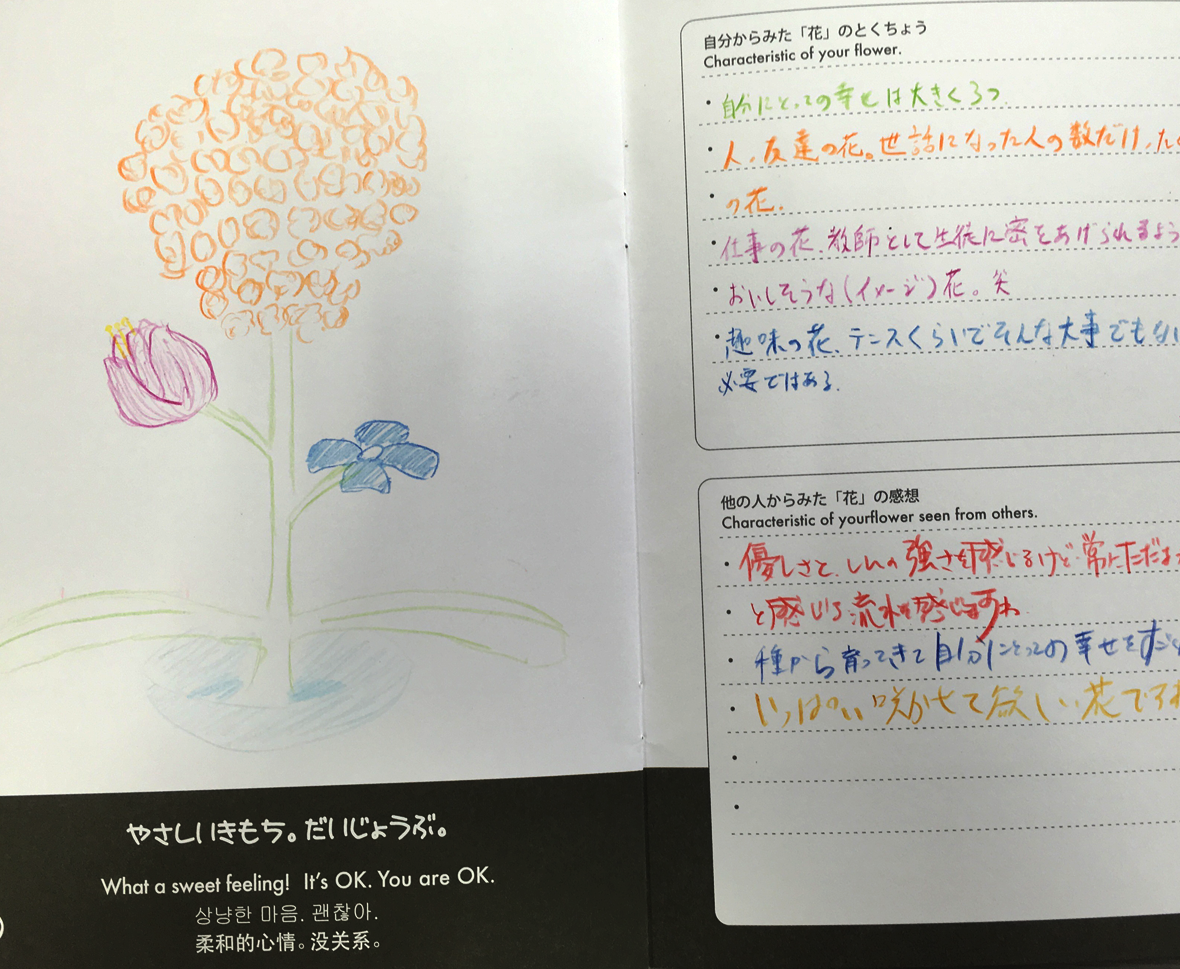 やさしいきもち。だいじょうぶ。
What a sweet feeling! It's OK. You are OK.
상냥한 마음. 괜찮아.
柔和的心情。没关系。
自分からみた「花」のとくちょう
Characteristic of your flower.
・自分にとっての幸せは大きく3つ
・人、友達の花。世話になった人の数だけ、た
・の花.
・仕事の花、教師として生徒に密をあげられるよう
・おいしそうな(イメージ)花。笑
・趣味の花、テニスくらいでそんな大事でもない
必要ではある.
他の人からみた「花」の感想
Characteristic of yourflower seen from others.
・優しさと、しんの強さを感じるけど、常にただよ
・と感じる流れを感じますね
・種から育ってきて自分にとっての幸せをすご
・いっぱい咲かせて欲しい花ですね